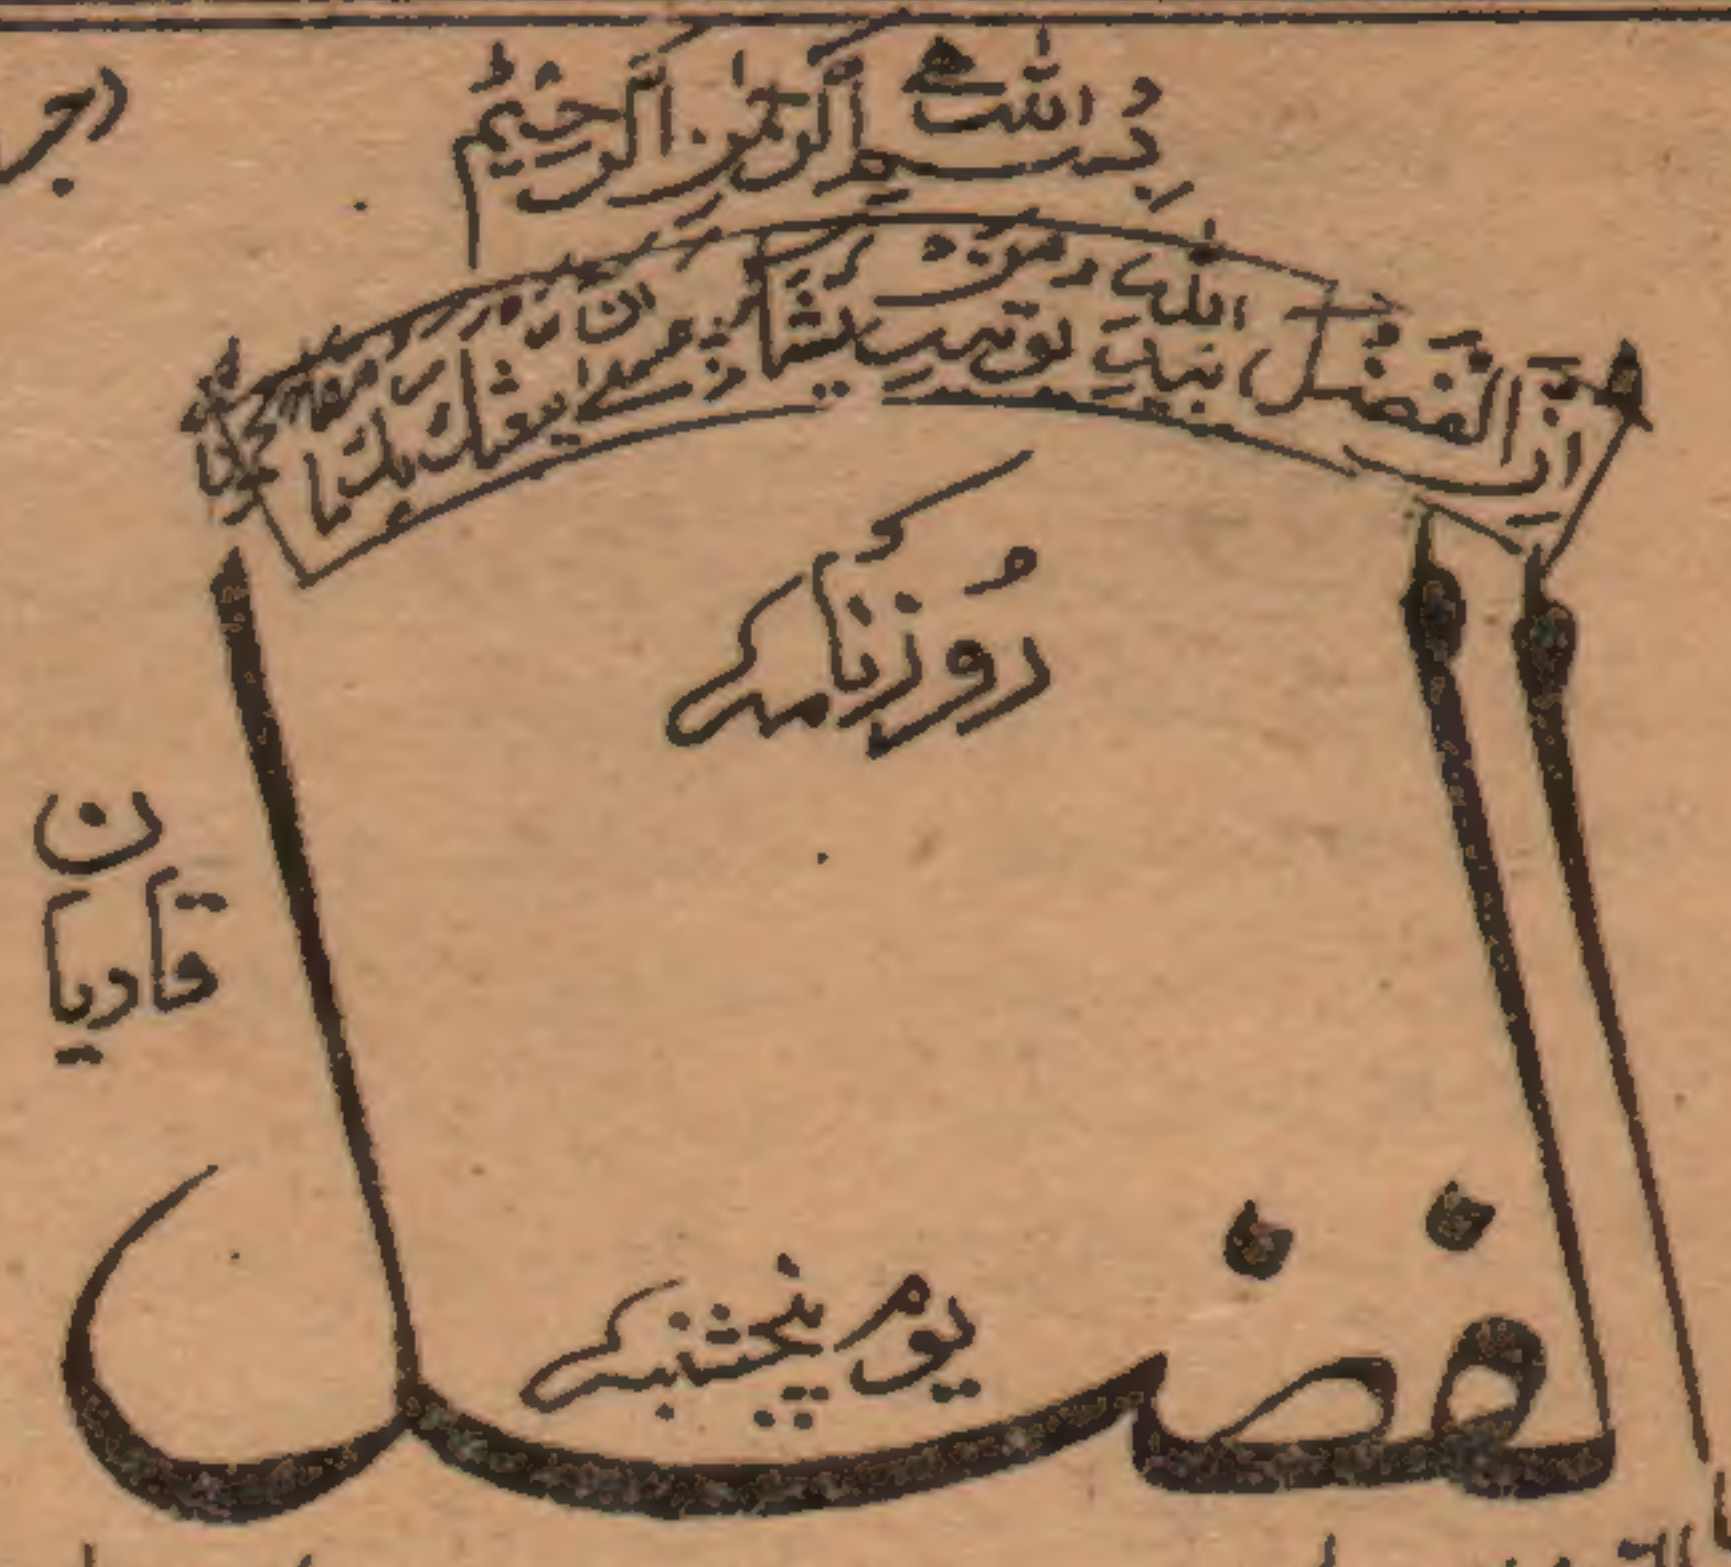 بسم اللہ الرحمن الرحیم
ان الفضل بید اللہ یؤتیہ من یشاء عسیٰ ان یبعثک ربک مقاما محمودا
روزنامہ
قادیان
الفضل
یوم پنجشنبہ